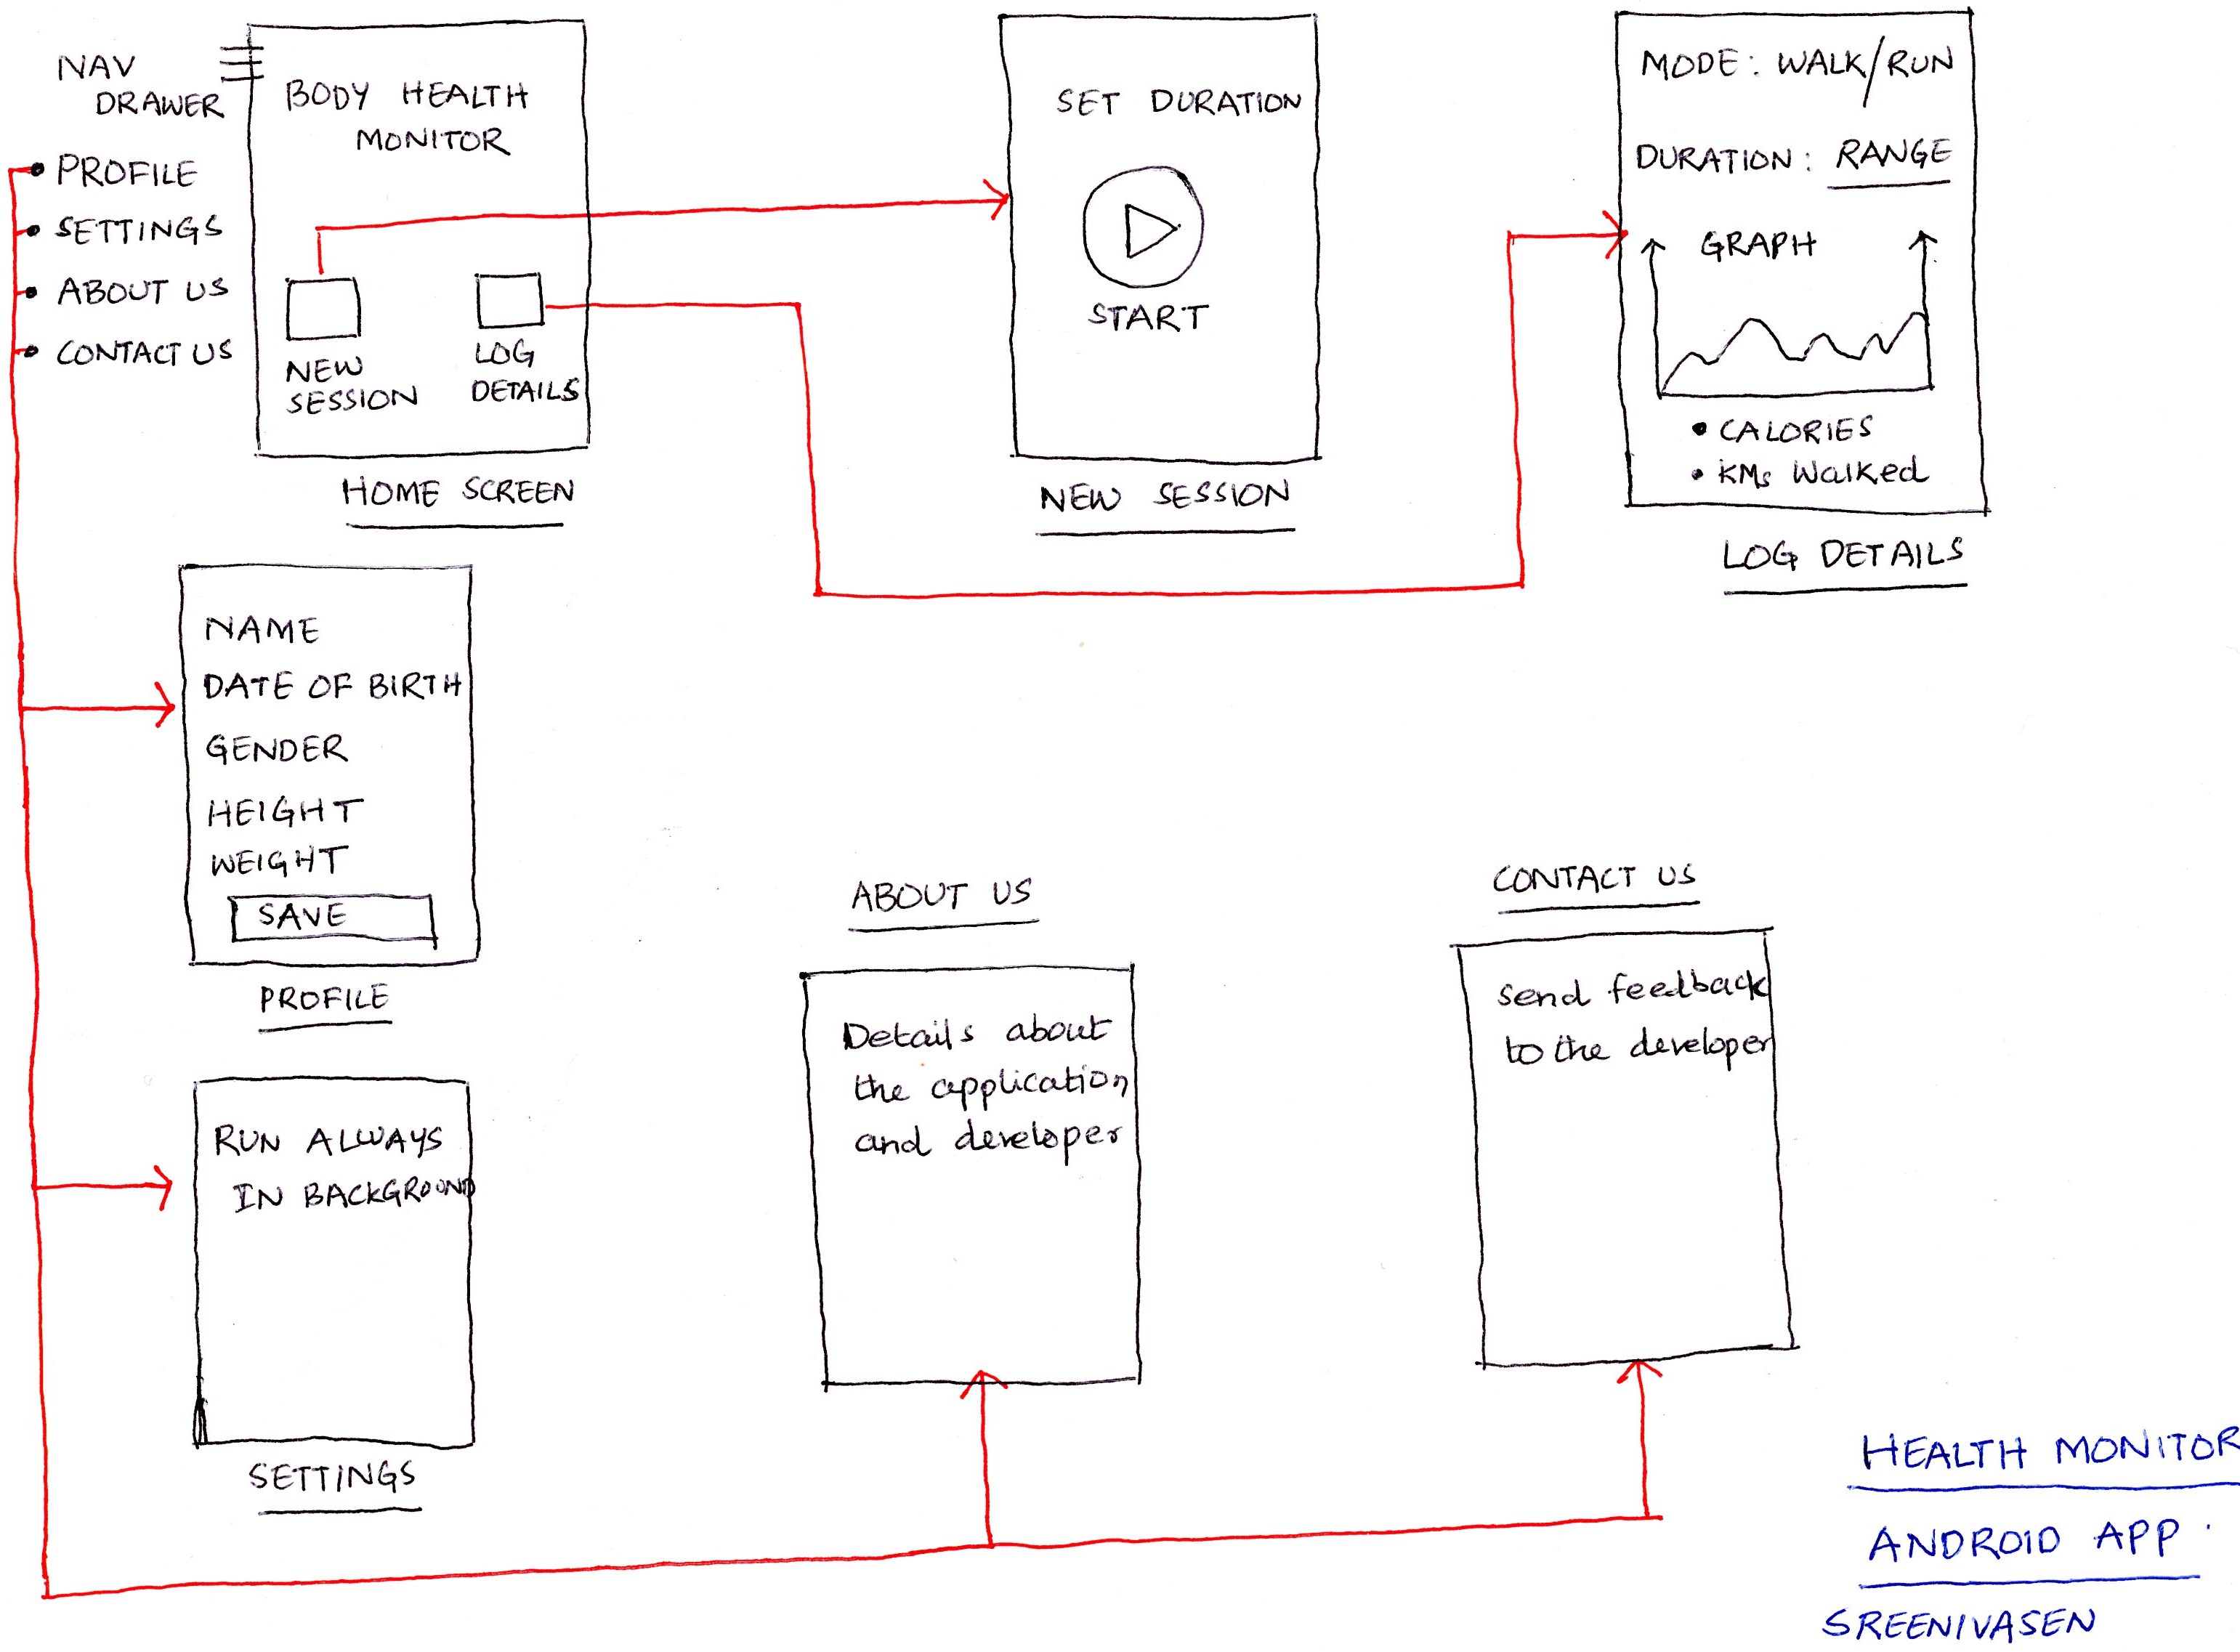 NAV
DRAWER
• PROFILE
• SETTINGS
• ABOUT US
• CONTACT US
BODY HEALTH
MONITOR
NEW
SESSION
LOG
DETAILS
HOME SCREEN
SET DURATION
START
NEW SESSION
MODE: WALK/RUN
DURATION: RANGE
GRAPH
• CALORIES
• KMs Walked
LOG DETAILS
NAME
DATE OF BIRTH
GENDER
HEIGHT
WEIGHT
SAVE
PROFILE
RUN ALWAYS
IN BACKGROUND
SETTINGS
ABOUT US
Details about
the application
and developer
CONTACT US
Send feedback
to the developer
HEALTH MONITOR
ANDROID APP.
SREENIVASEN